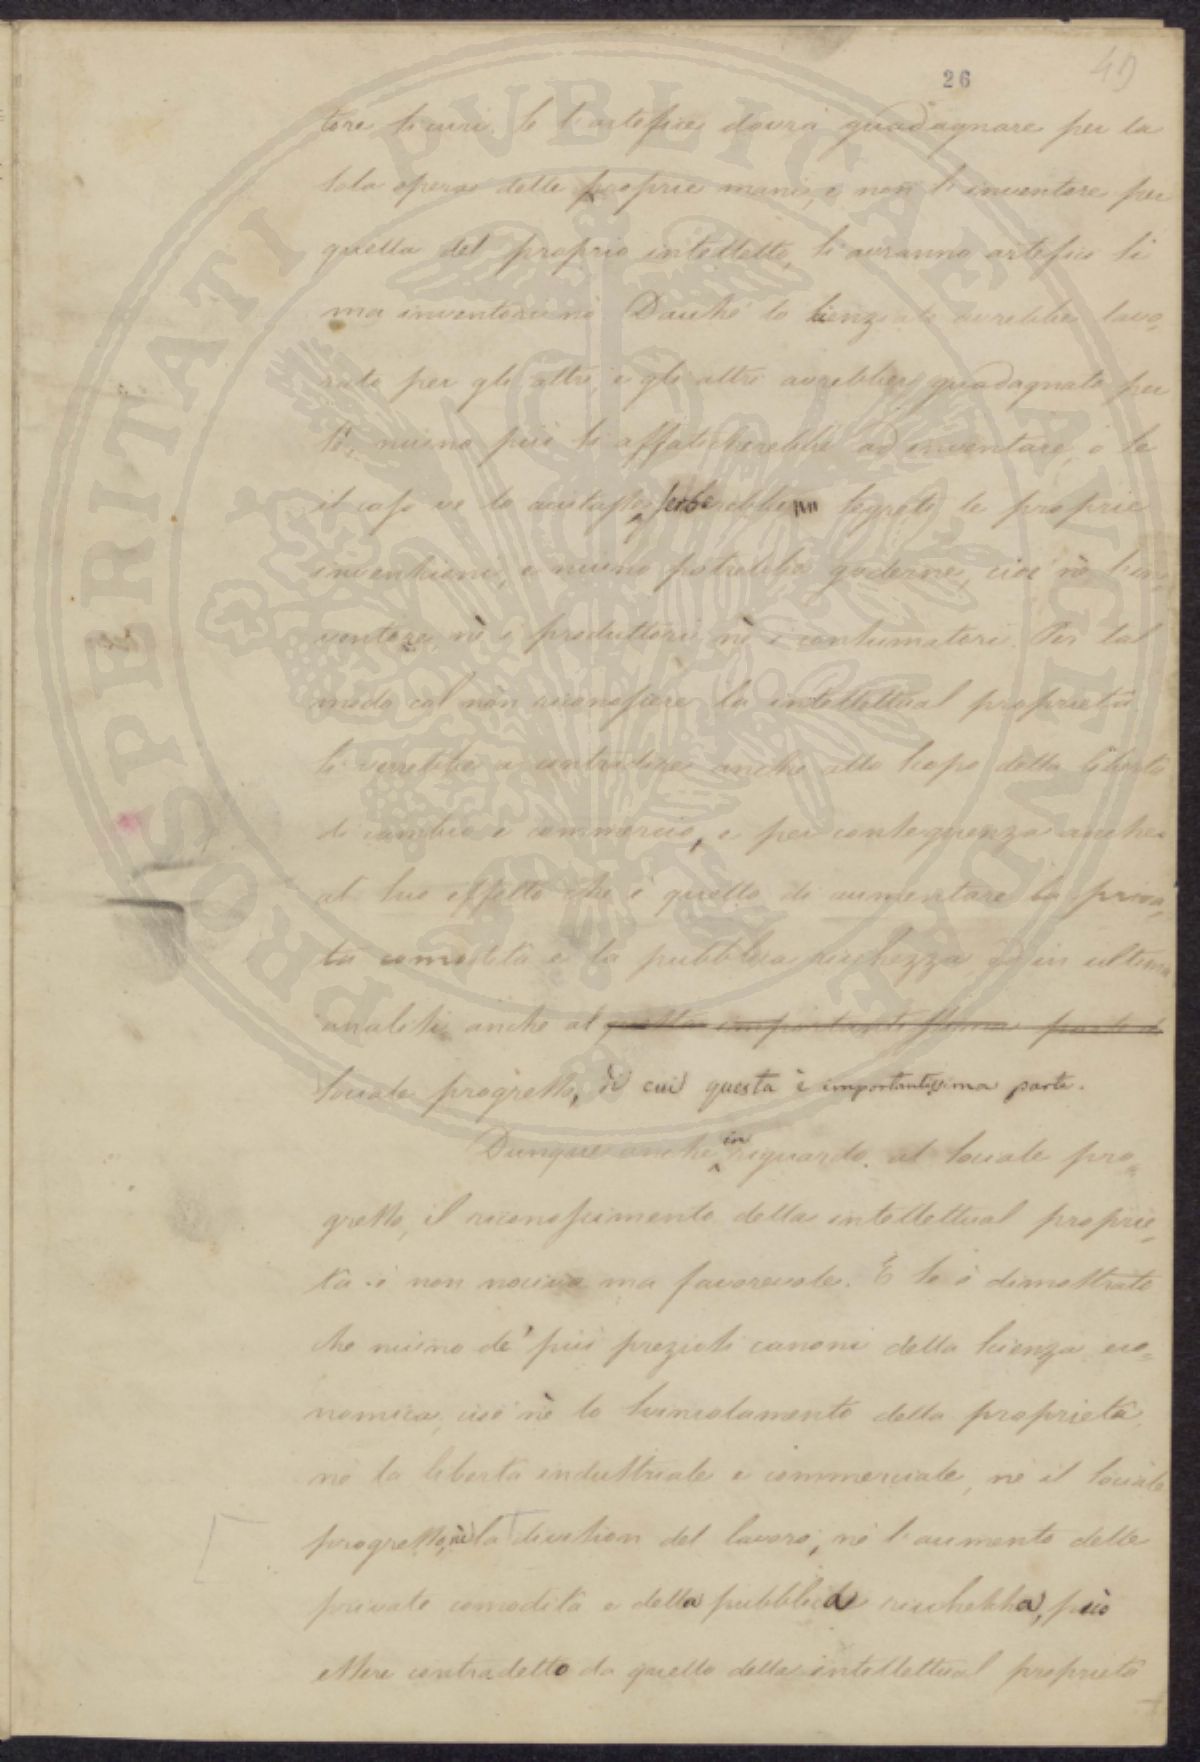 26
49
tore sicuri. Se l'artefice dovrà guadagnare per la
sola opera delle proprie mani, e non l'inventore per
quella del proprio intelletto, si avranno artefici sì
ma inventori no. Dacché lo scienziato avrebbe lavo-
rato per gli altri, e gli altri avrebber guadagnato per
sè, niuno più si affaticherebbe ad inventare, o se
il caso ve lo aiutasse, serberebbe segreto le proprie
invenzioni, e niuno potrebbe goderne, cioè nè l'in-
ventore, nè i produttori nè i consumatori. Per tal
modo col non riconoscere la intellettual proprietà
si verrebbe a contradire anche allo scopo della libertà
di cambio e commercio, e per conseguenza anche
al suo effetto che è quello di aumentare la priva-
ta comodità e la pubblica ricchezza, ed in ultima
analisi, anche al questa importantissima parte
sociale progresso, di cui questa è importantissima parte.
Dunque anche in riguardo al sociale pro-
gresso, il riconoscimento della intellettual proprie-
tà è non nociva ma favorevole. E se è dimostrato
che niuno de' più preziosi canoni della scienza eco-
nomica, cioè nè lo svincolamento della proprietà,
nè la libertà industriale e commerciale, nè il sociale
progresso, nè la division del lavoro, nè l'aumento delle
private comodità e della pubblica ricchezza, può
essere contradetto da quello della intellettual proprietà
PROSPERITATI PUBLICAE AUGENDAE